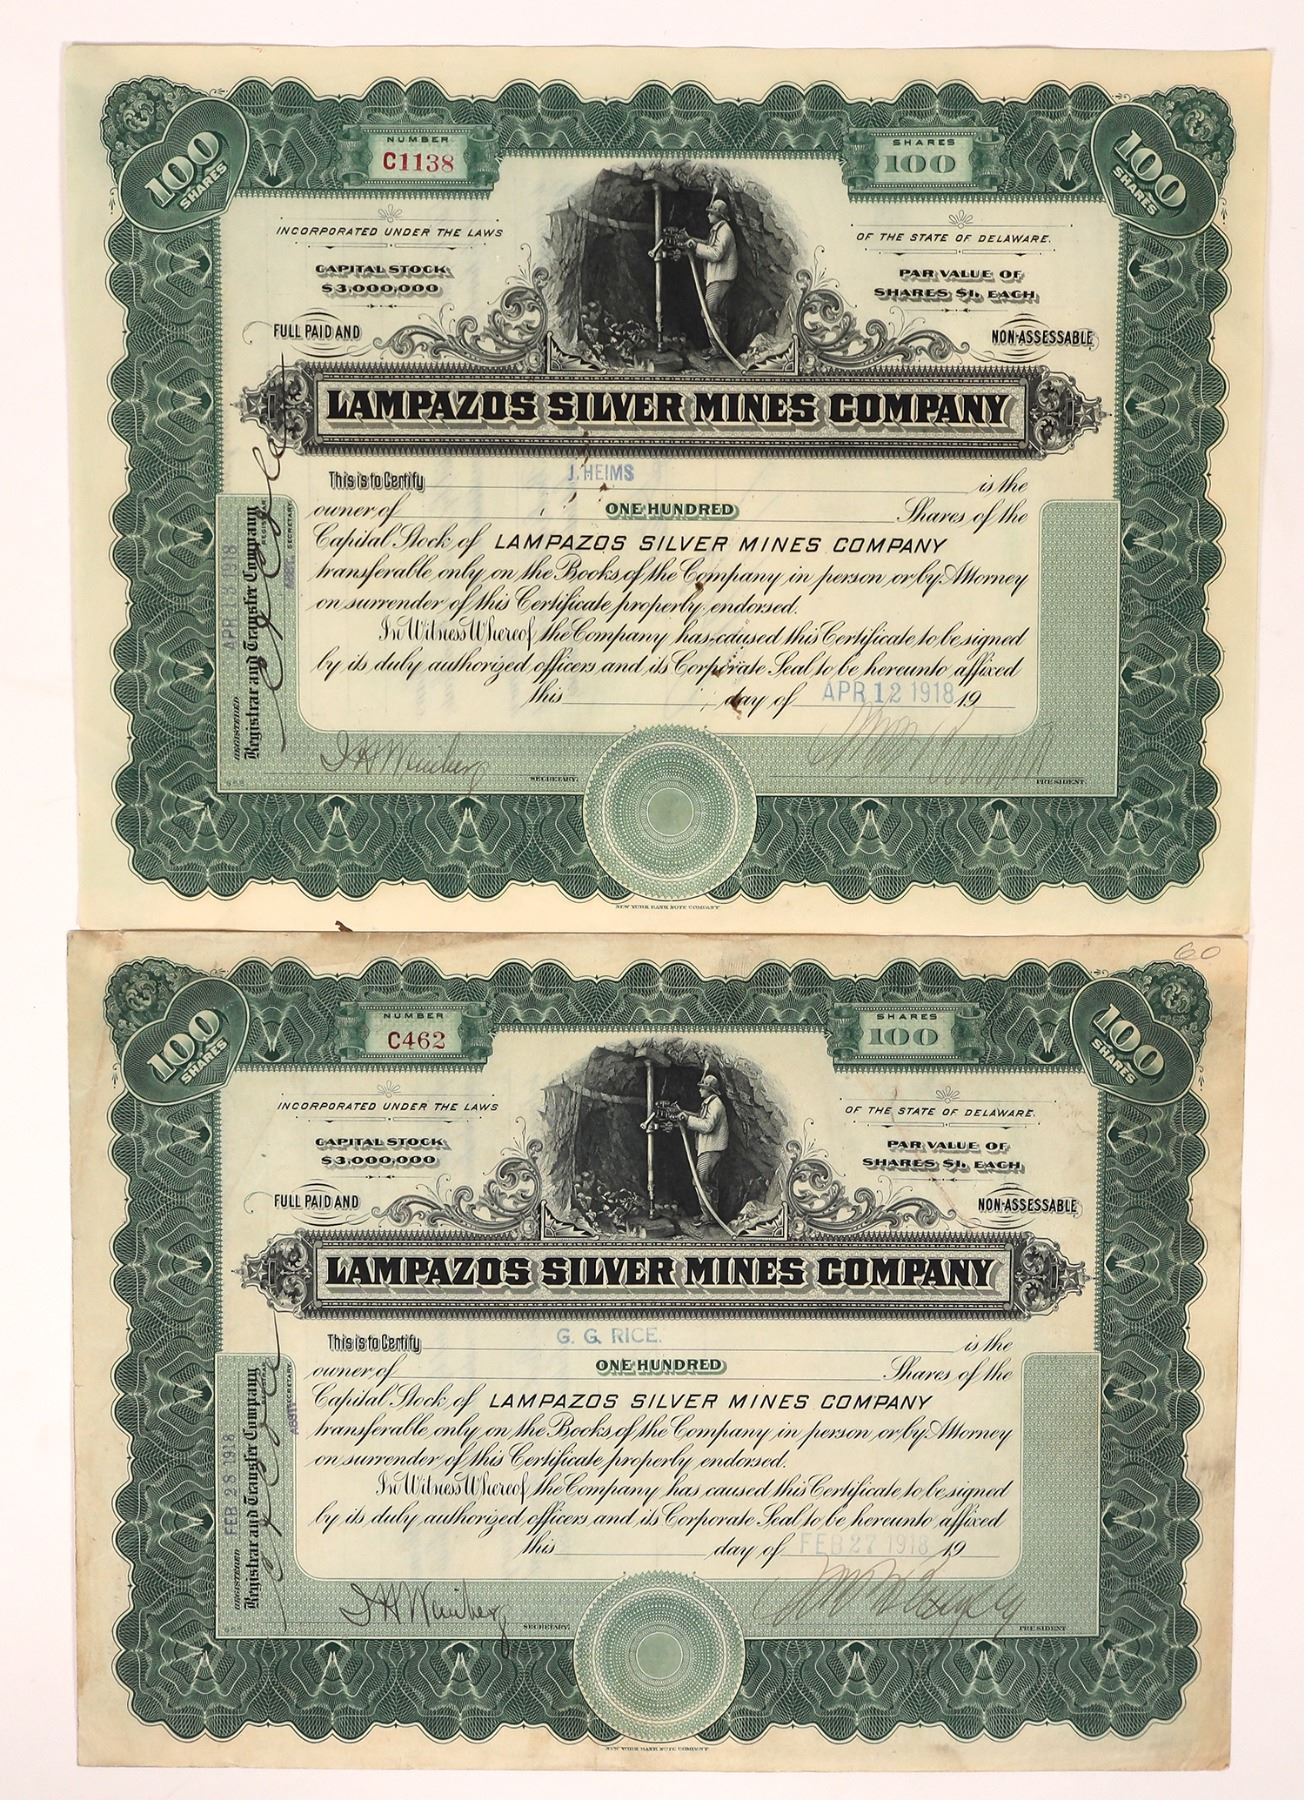 100 SHARES
NUMBER
C1138
SHARES
100
100 SHARES
INCORPORATED UNDER THE LAWS
OF THE STATE OF DELAWARE.
CAPITAL STOCK
$3,000,000
PAR VALUE OF
SHARES $1, EACH
FULL PAID AND
NON-ASSESSABLE
LAMPAZOS SILVER MINES COMPANY
This is to Certify J. HEIMS is the
owner of ONE HUNDRED Shares of the
Capital Stock of LAMPAZOS SILVER MINES COMPANY
transferable only on the Books of the Company in person or by Attorney
on surrender of this Certificate properly endorsed.
In Witness Whereof, the Company has caused this Certificate to be signed
by its duly authorized officers and its Corporate Seal to be hereunto affixed
this day of APR 12 1918 19
REGISTERED APR 13 1918
Registrar and Transfer Company
REGISTRAR
SECRETARY
I H Weinberg
SECRETARY.
PRESIDENT.
NEW YORK BANK NOTE COMPANY
60
100 SHARES
NUMBER
C462
SHARES
100
100 SHARES
INCORPORATED UNDER THE LAWS
OF THE STATE OF DELAWARE.
CAPITAL STOCK
$3,000,000
PAR VALUE OF
SHARES $1, EACH
FULL PAID AND
NON-ASSESSABLE
LAMPAZOS SILVER MINES COMPANY
This is to Certify G. G. RICE. is the
owner of ONE HUNDRED Shares of the
Capital Stock of LAMPAZOS SILVER MINES COMPANY
transferable only on the Books of the Company in person or by Attorney
on surrender of this Certificate properly endorsed.
In Witness Whereof, the Company has caused this Certificate to be signed
by its duly authorized officers and its Corporate Seal to be hereunto affixed
this day of FEB 27 1918 19
REGISTERED FEB 28 1918
Registrar and Transfer Company
SECRETARY
I H Weinberg
SECRETARY.
PRESIDENT
NEW YORK BANK NOTE COMPANY